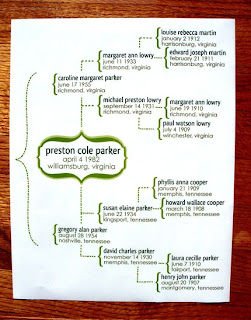 louise rebecca martin
january 2 1912
harrisonburg, virginia
edward joseph martin
february 21 1911
harrisonburg, virginia
margaret ann lowry
june 11 1933
richmond, virginia
caroline margaret parker
june 17 1955
richmond, virginia
michael preston lowry
september 14 1931
richmond, virginia
margaret ann lowry
june 19 1910
richmond, virginia
paul watson lowry
july 4 1909
winchester, virginia
preston cole parker
april 4 1982
williamsburg, virginia
phyllis anna cooper
january 21 1909
memphis, tennessee
howard wallace cooper
march 18 1908
memphis, tennessee
susan elaine parker
june 22 1934
kingsport, tennessee
gregory alan parker
august 28 1954
nashville, tennessee
david charles parker
november 14 1930
memphis, tennessee
laura cecilie parker
june 7 1910
fairport, tennessee
henry john parker
august 20 1907
montgomery, tennessee